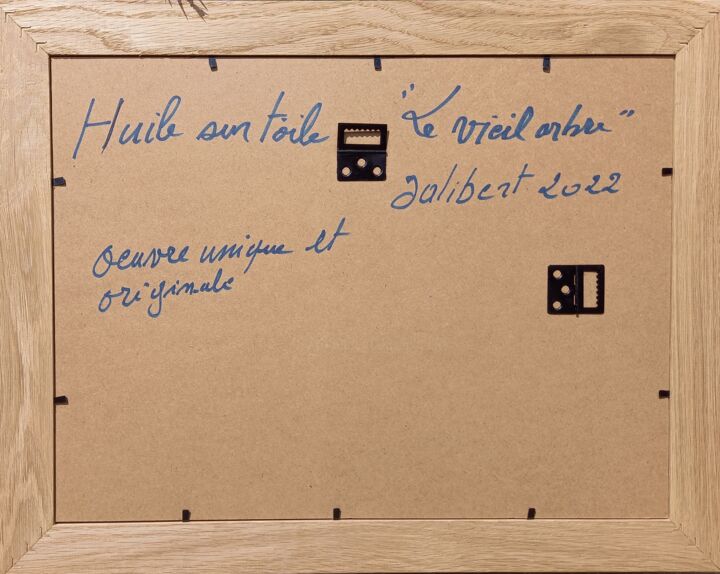 Huile sur toile
"Le vieil arbre"
Jalibert 2022
Oeuvre unique et
originale